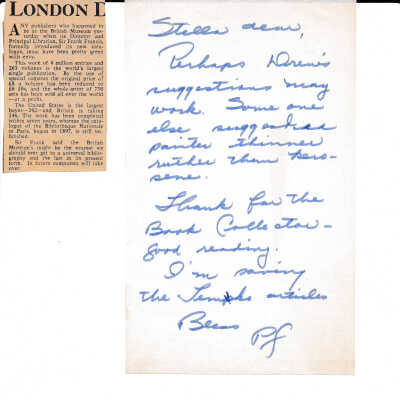 LONDON D
ANY publishers who happened to
be at the British Museum yes-
terday when its Director and
Principal Librarian, Sir Frank Francis,
formally introduced its new cata-
logue, must have been pretty green
with envy.
This work of 4 million entries and
263 volumes is the world's largest
single publication. By the use of
special cameras the original price of
£8 a volume has been reduced to
£6 10s. and the whole order of 750
sets has been sold all over the world
—at a profit.
The United States is the largest
buyer—362—and Britain is taking
144. The work has been completed
within seven years, whereas the cata-
logue of the Bibliothèque Nationale
in Paris, begun in 1897, is still un-
finished.
Sir Frank said the British
Museum's might be the nearest we
should ever get to a universal biblio-
graphy and the last in its present
form. In future computers will take
over.
Stella dear,
Perhaps Drew's
suggestions may
work. Some one
else suggested
painter thinner
ruther than kero-
sene.
Thank for the
Book Collector –
good reading.
I'm saving
the articles